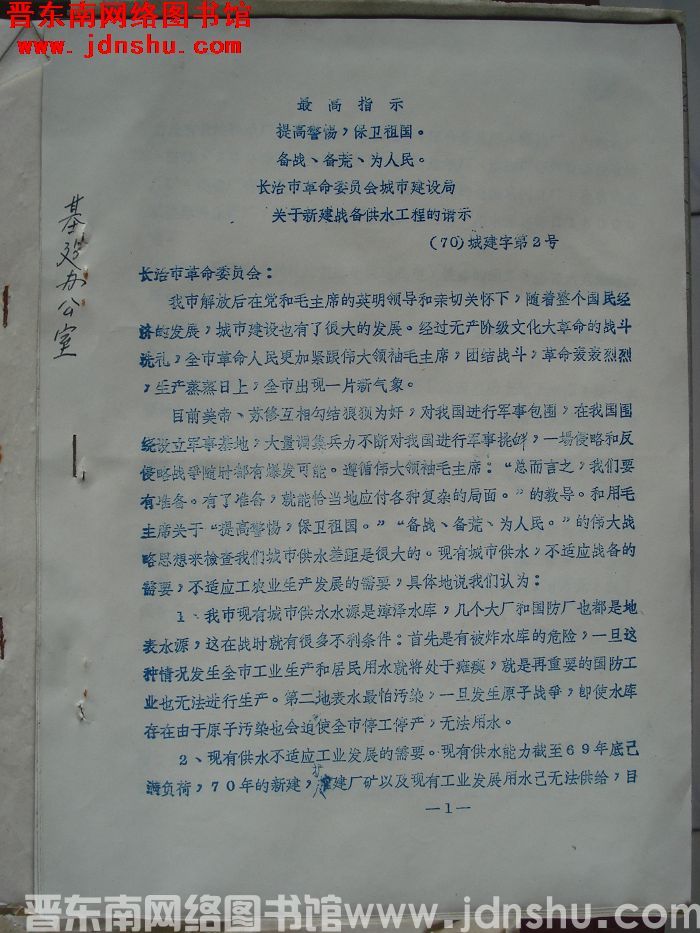 晋东南网络图书馆
www.jdnshu.com
最高指示
提高警惕，保卫祖国。
备战、备荒、为人民。
长治市革命委员会城市建设局
关于新建战备供水工程的请示
(70)城建字第2号
基建办公室
长治市革命委员会：
我市解放后在党和毛主席的英明领导和亲切关怀下，随着整个国民经
济的发展，城市建设也有了很大的发展。经过无产阶级文化大革命的战斗
洗礼，全市革命人民更加紧跟伟大领袖毛主席，团结战斗，革命轰轰烈烈
，生产蒸蒸日上，全市出现一片新气象。
目前美帝、苏修互相勾结狼狈为奸，对我国进行军事包围，在我国围
绕设立军事基地，大量调集兵力不断对我国进行军事挑衅，一場侵略和反
侵略战爭随时都有爆发可能。遵循伟大领袖毛主席：“总而言之，我们要
有准备。有了准备，就能恰当地应付各种复杂的局面。”的教导。和用毛
主席关于“提高警惕，保卫祖国。”“备战、备荒、为人民。”的伟大战
略思想来檢查我们城市供水差距是很大的。现有城市供水，不适应战备的
需要，不适应工农业生产发展的需要，具体地说我们认为：
1、我市现有城市供水水源是漳泽水库，几个大厂和国防厂也都是地
表水源，这在战时就有很多不利条件：首先是有被炸水库的危险，一旦这
种情况发生全市工业生产和居民用水就将处于瘫痪，就是再重要的国防工
业也无法进行生产。第二地表水最怕污染，一旦发生原子战爭，卽使水库
存在由于原子污染也会迫使全市停工停产，无法用水。
2、现有供水不适应工业发展的需要。现有供水能力截至69年底己
满负荷，70年的新建，扩建厂矿以及现有工业发展用水己无法供给，目
—1—
晋东南网络图书馆 www.jdnshu.com